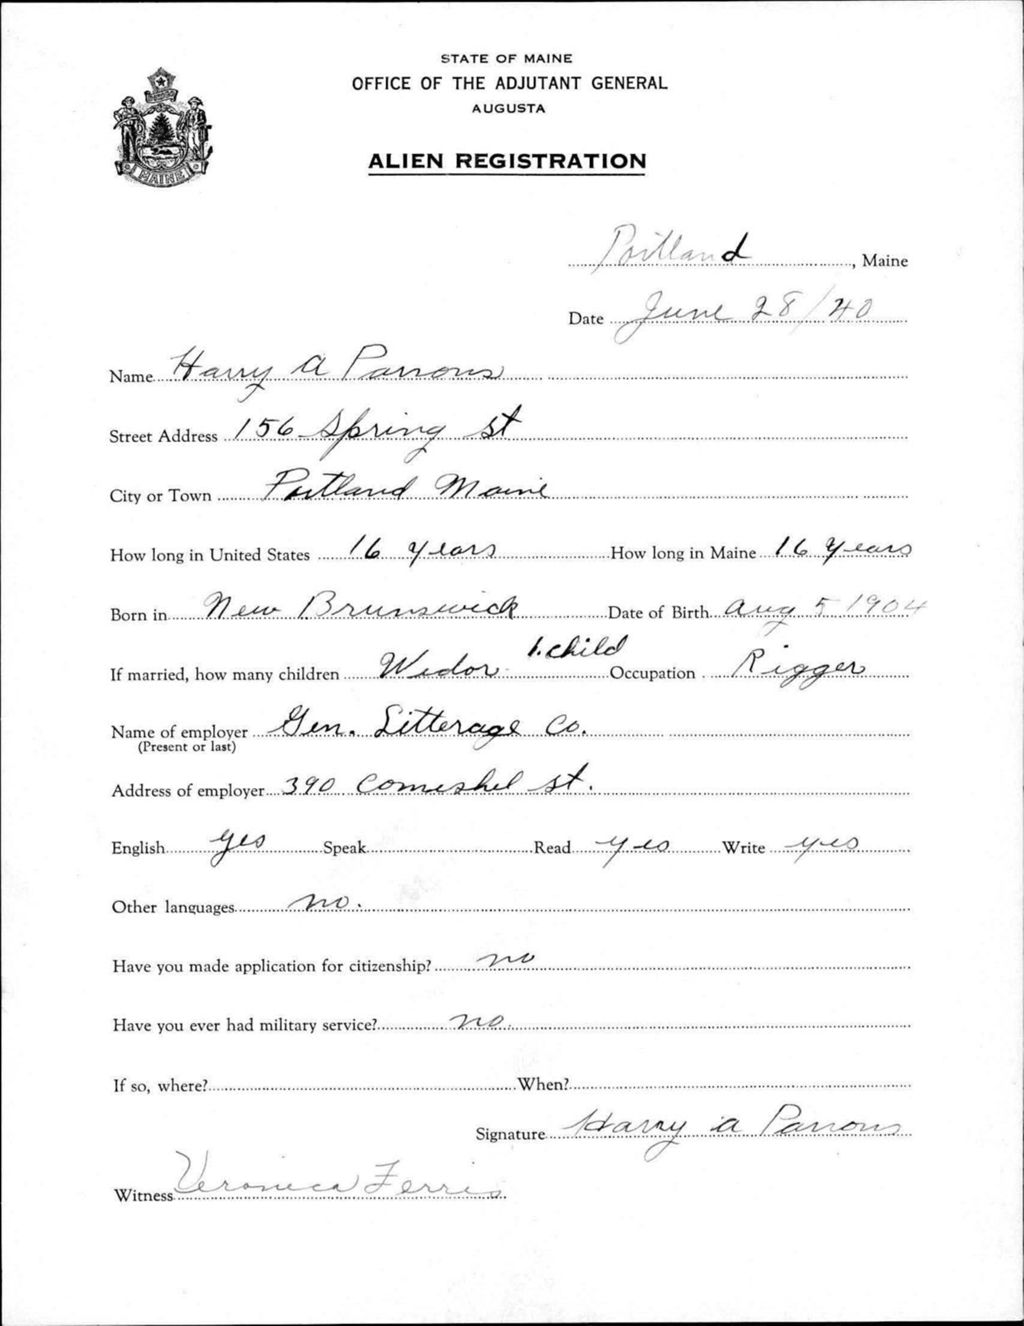 STATE OF MAINE
OFFICE OF THE ADJUTANT GENERAL
AUGUSTA
ALIEN REGISTRATION
MAINE
Portland, Maine
Date June 28/40
Name Harry A Parsons
Street Address 156 Spring St
City or Town Portland Maine
How long in United States 16 years How long in Maine 16 years
Born in New Brunswick Date of Birth Aug 5 1904
If married, how many children Widor 1. child Occupation Rigger
Name of employer Gen. Litterage Co.
(Present or last)
Address of employer 390 Comershel st.
English yes Speak Read yes Write yes
Other languages no.
Have you made application for citizenship? no
Have you ever had military service? no.
If so, where? When?
Signature Harry A Parsons
Witness Veronica Ferris